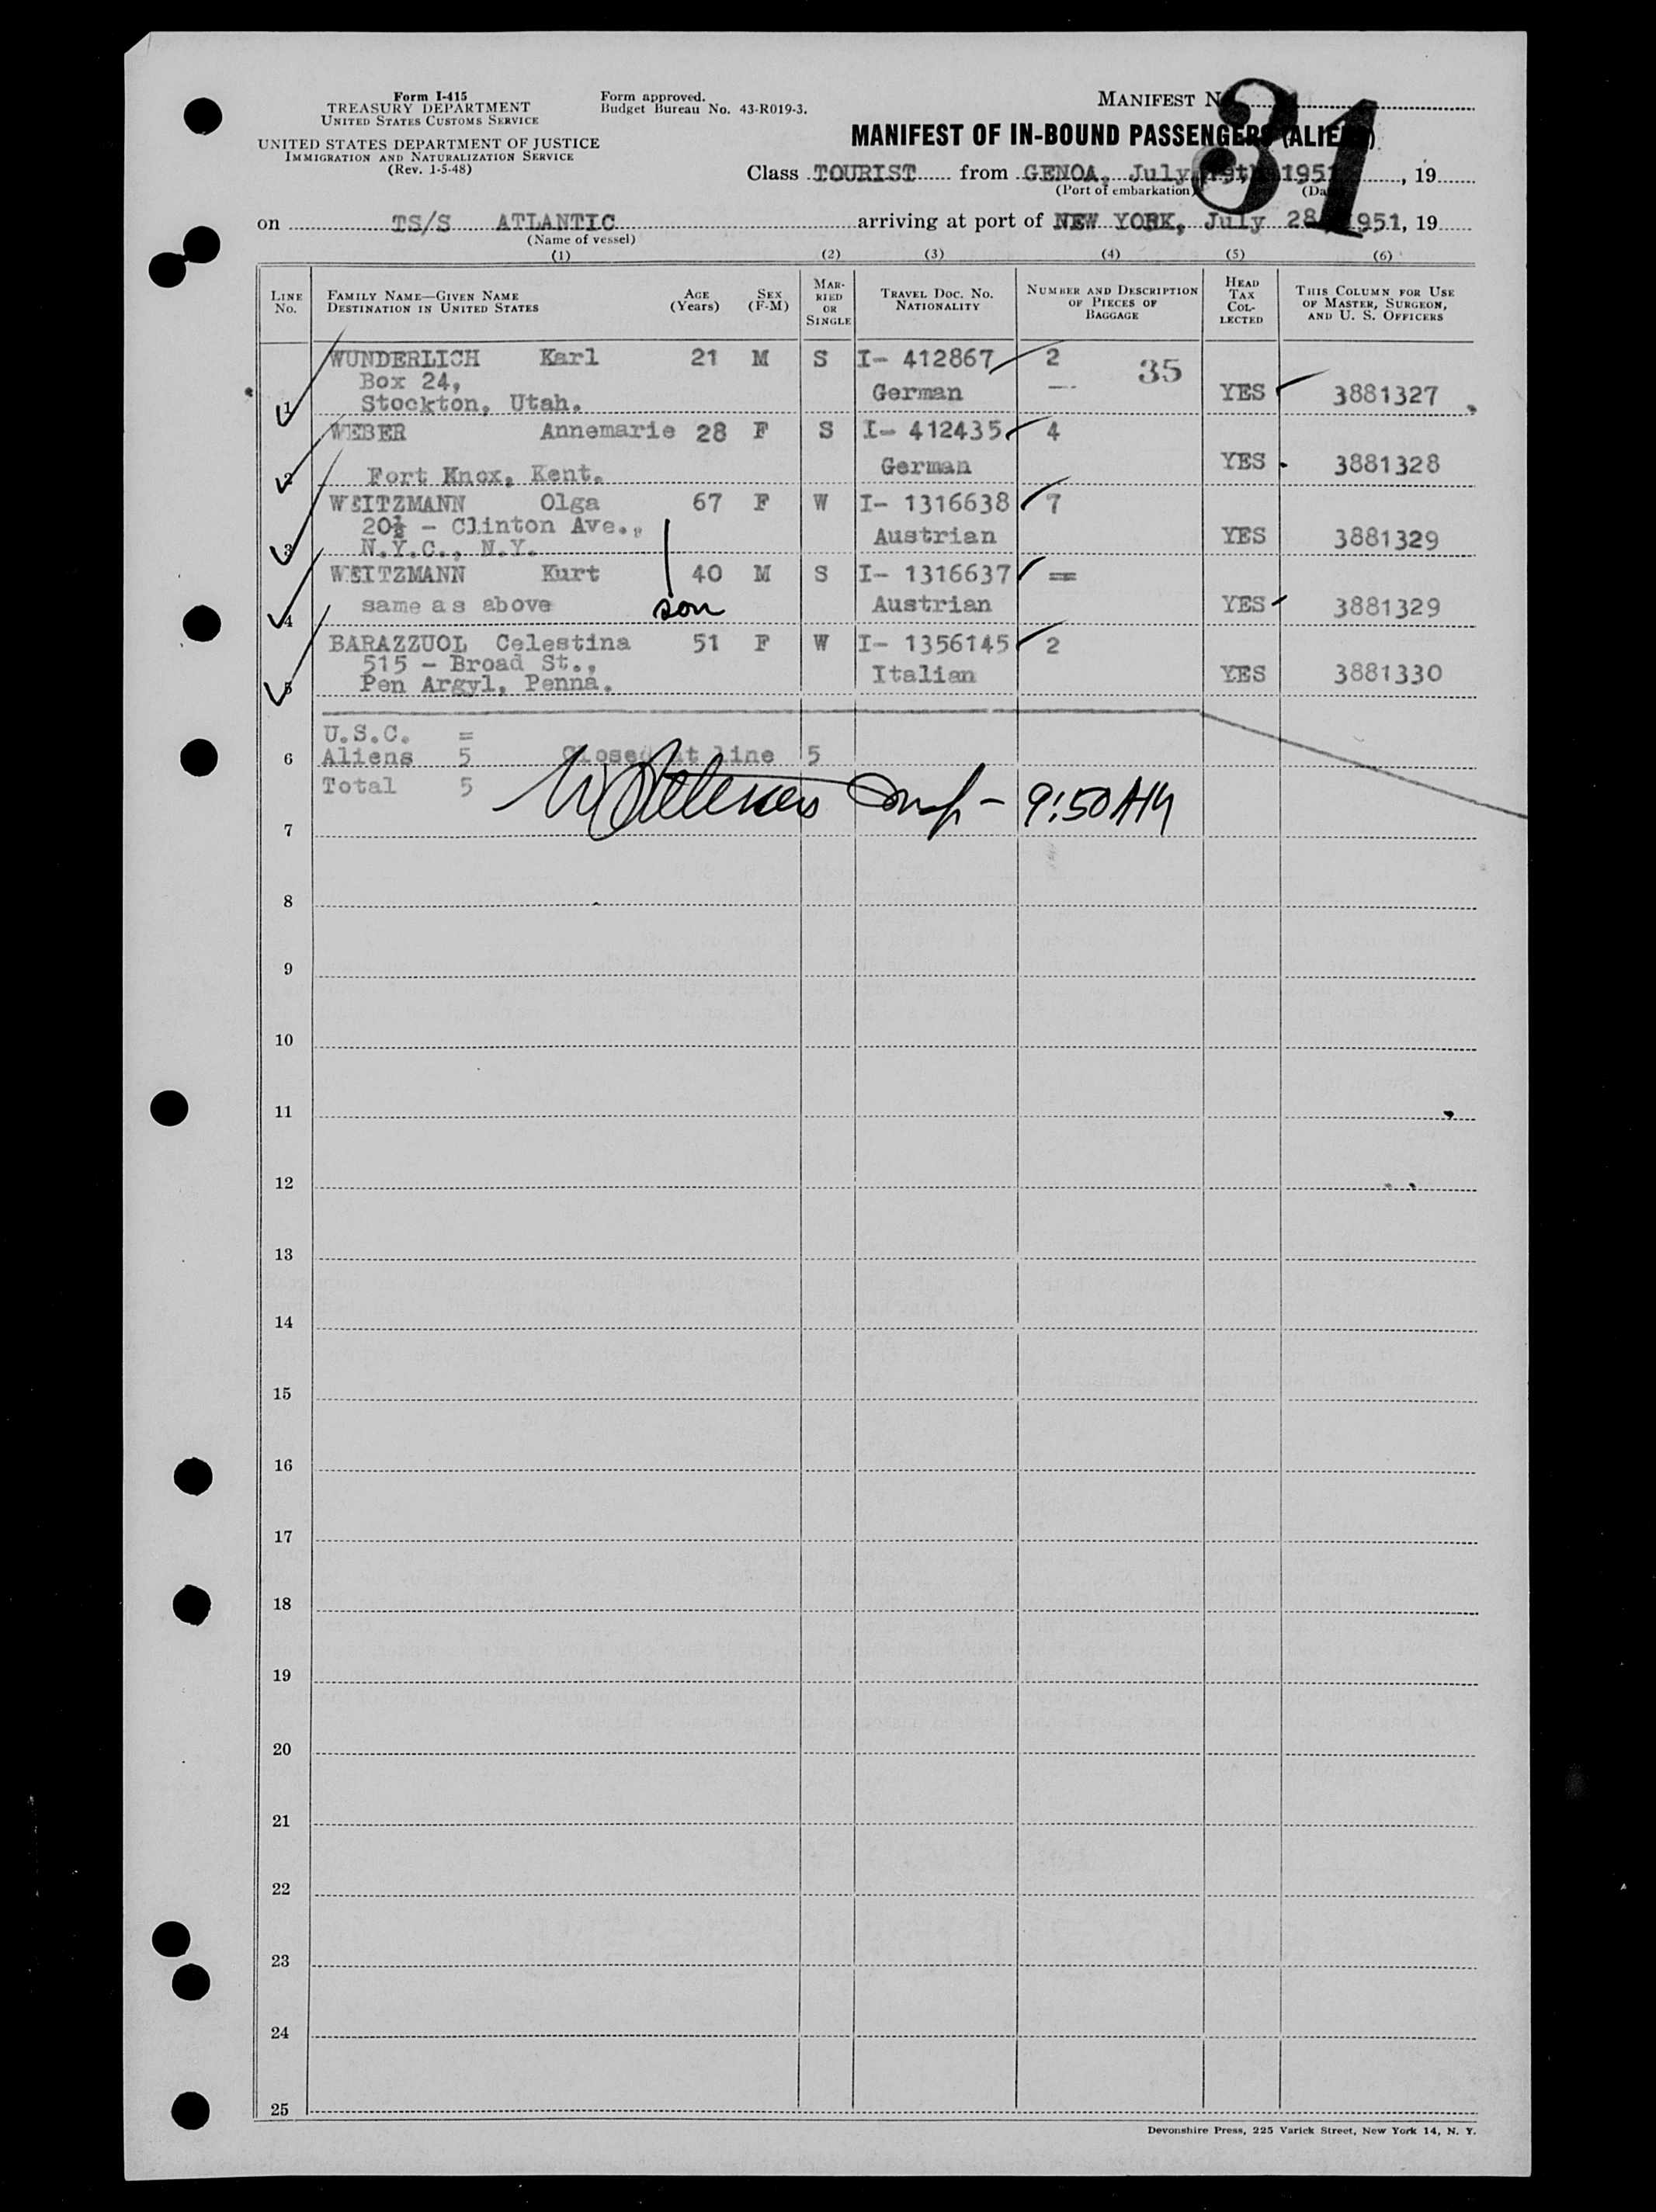 Form I-415
TREASURY DEPARTMENT
UNITED STATES CUSTOMS SERVICE
UNITED STATES DEPARTMENT OF JUSTICE
IMMIGRATION AND NATURALIZATION SERVICE
(Rev. 1-5-48)
Form approved.
Budget Bureau No. 43-R019-3.
MANIFEST N
31
MANIFEST OF IN-BOUND PASSENGERS (ALIENS)
Class TOURIST from GENOA, July 19th 1951, 19
(Port of embarkation) (Da
on TS/S ATLANTIC arriving at port of NEW YORK, July 28, 1951, 19
(Name of vessel)
(1) (2) (3) (4) (5) (6)
LINE NO. FAMILY NAME—GIVEN NAME DESTINATION IN UNITED STATES AGE (Years) SEX (F-M) MARRIED OR SINGLE TRAVEL DOC. NO. NATIONALITY NUMBER AND DESCRIPTION OF PIECES OF BAGGAGE HEAD TAX COLLECTED THIS COLUMN FOR USE OF MASTER, SURGEON, AND U. S. OFFICERS
WUNDERLICH Karl 21 M S I- 412867 2 35
Box 24, German — YES 3881327
1 Stockton, Utah.
WEBER Annemarie 28 F S I- 412435 4
German YES 3881328
2 Fort Knox, Kent.
WEITZMANN Olga 67 F W I- 1316638 7
20½ - Clinton Ave., Austrian YES 3881329
3 N.Y.C., N.Y.
WEITZMANN Kurt 40 M S I- 1316637 ==
same as above son Austrian YES 3881329
4
BARAZZUOL Celestina 51 F W I- 1356145 2
515 - Broad St., Italian YES 3881330
5 Pen Argyl, Penna.
U.S.C. =
6 Aliens 5 Closed at line 5
Total 5
9:50 AM
7
8
9
10
11
12
13
14
15
16
17
18
19
20
21
22
23
24
25
Devonshire Press, 225 Varick Street, New York 14, N. Y.